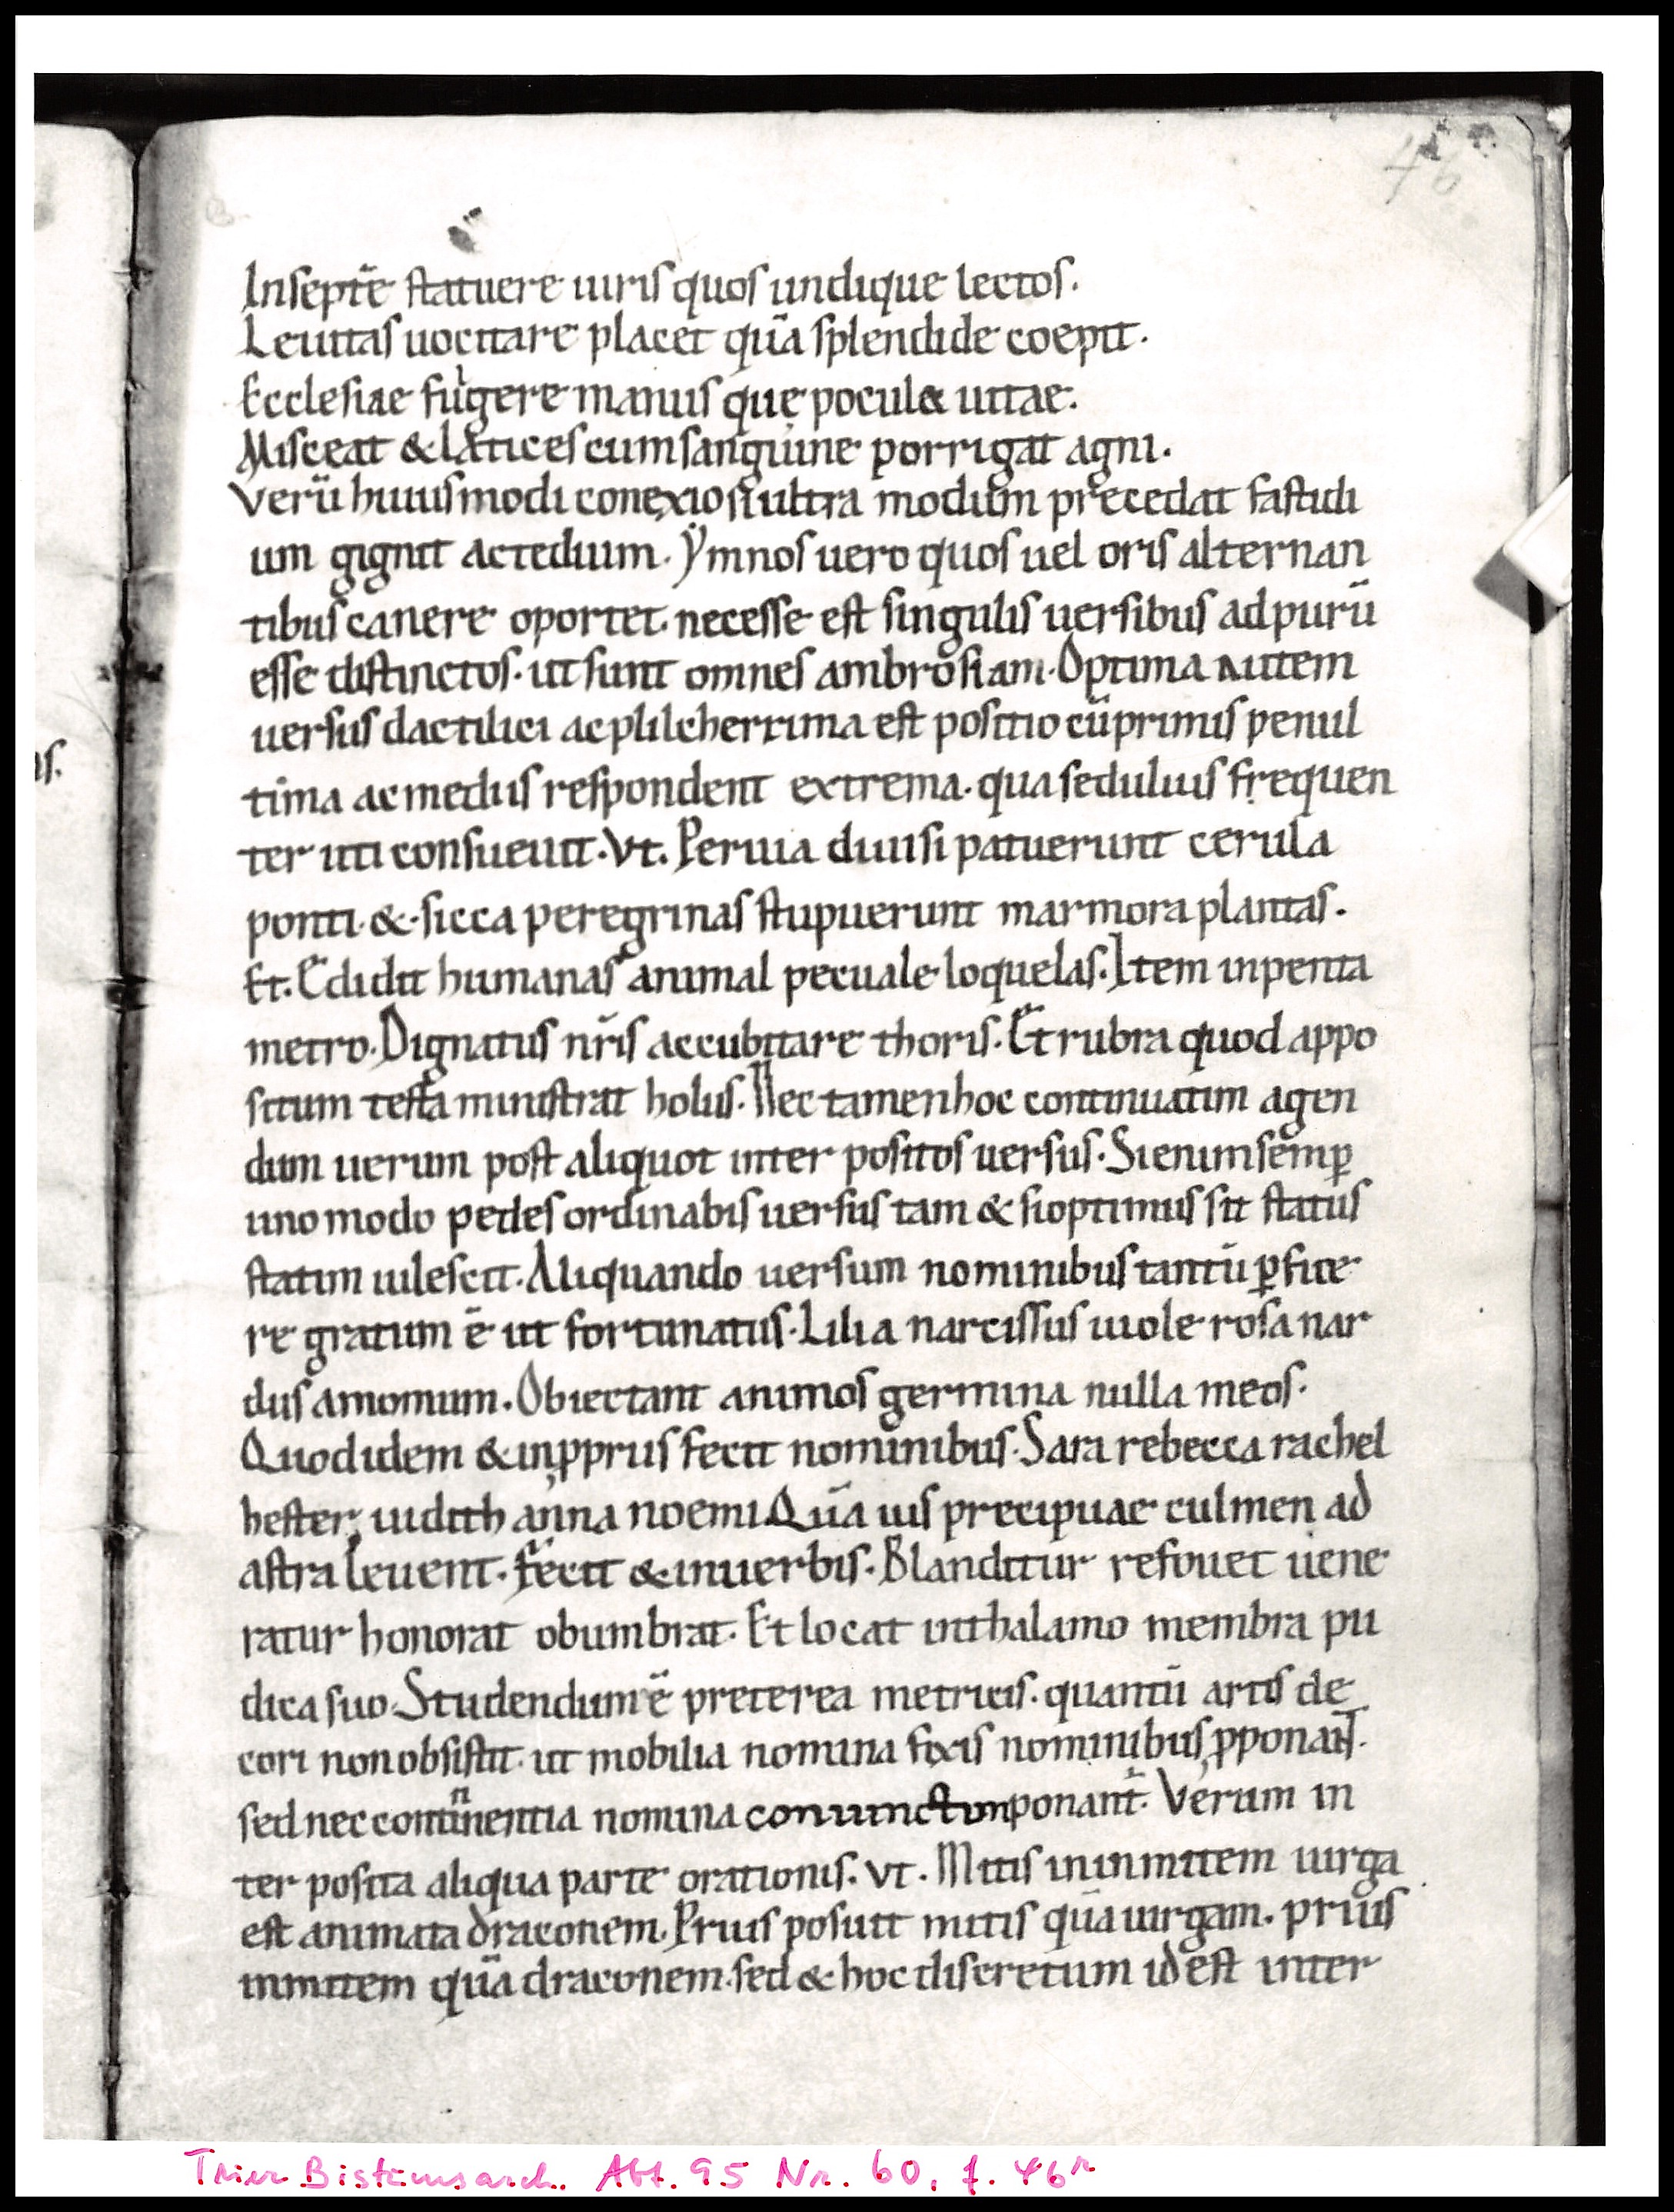 46
Inseptē statuere uiris quos undique lectos.
Leuitas uocitare placet quā splendide coepit.
Ecclesiae fulgere manus que pocula uitae.
Misceat & latices cum sanguine porrigat agni.
Verū huiusmodi conexio si ultra modum precedat fastidi
um gignit ac tedium. Ymnos uero quos uel oris alternan
tibus canere oportet. necesse est singulis uersibus ad purū
esse distinctos. ut sunt omnes ambrosiani. Optima autem
uersus dactilici ac pulcherrima est positio cū primis penul
tima ac mediis respondent extrema. qua sedulius frequen
ter uti consueuit. Vt. Peruia diuisi patuerunt cerula
ponti. & sicca peregrinas stupuerunt marmora plantas.
Et. Edidit humanas animal pecuale loquelas. Item in penta
metro. Dignatus nr̄is accubitare thoris. Et rubra quod appo
situm testa ministrat holus. Nec tamen hoc continuatim agen
dum uerum post aliquot inter positos uersus. Si enim semp
uno modo pedes ordinabis uersus tam & si optimus sit status
statim uilescit. Aliquando uersum nominibus tantū pfice
re gratum ē ut fortunatus. Lilia narcissus uiole rosa nar
dus amomum. Obiectant animos germina nulla meos.
Quod idem & in pprus fecit nominibus. Sara rebecca rachel
hester iudith anna noemi Quā uis precipuae culmen ad
astra leuent. Fecit & in uerbis. Blanditur refouet uene
ratur honorat obumbrat. Et locat in thalamo membra pu
dica suo. Studendum ē preterea metricis. quantū artis de
cori non obsistit. ut mobilia nomina fixis nominibus pponant.
sed nec continentia nomina coniunctim ponant. Verum in
ter posita aliqua parte orationis. Vt. Mitis in inmitem uirga
est animata draconem. Prius posuit mitis quā uirgam. prius
inmitem quā draconem. sed & hoc discretum id est inter
s.
Trier Bistumsarch. Abt. 95 Nr. 60, f. 46r